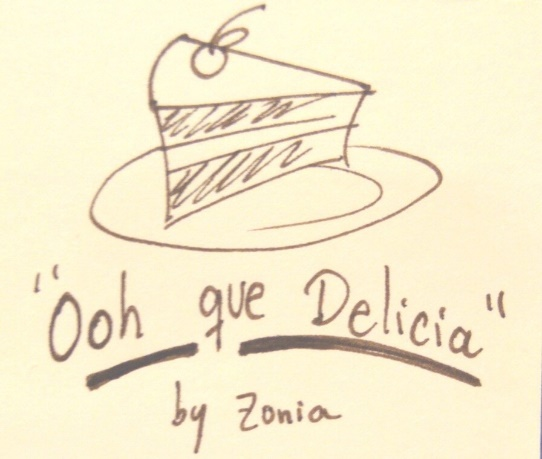 "Ooh que Delicia"
by Zonia